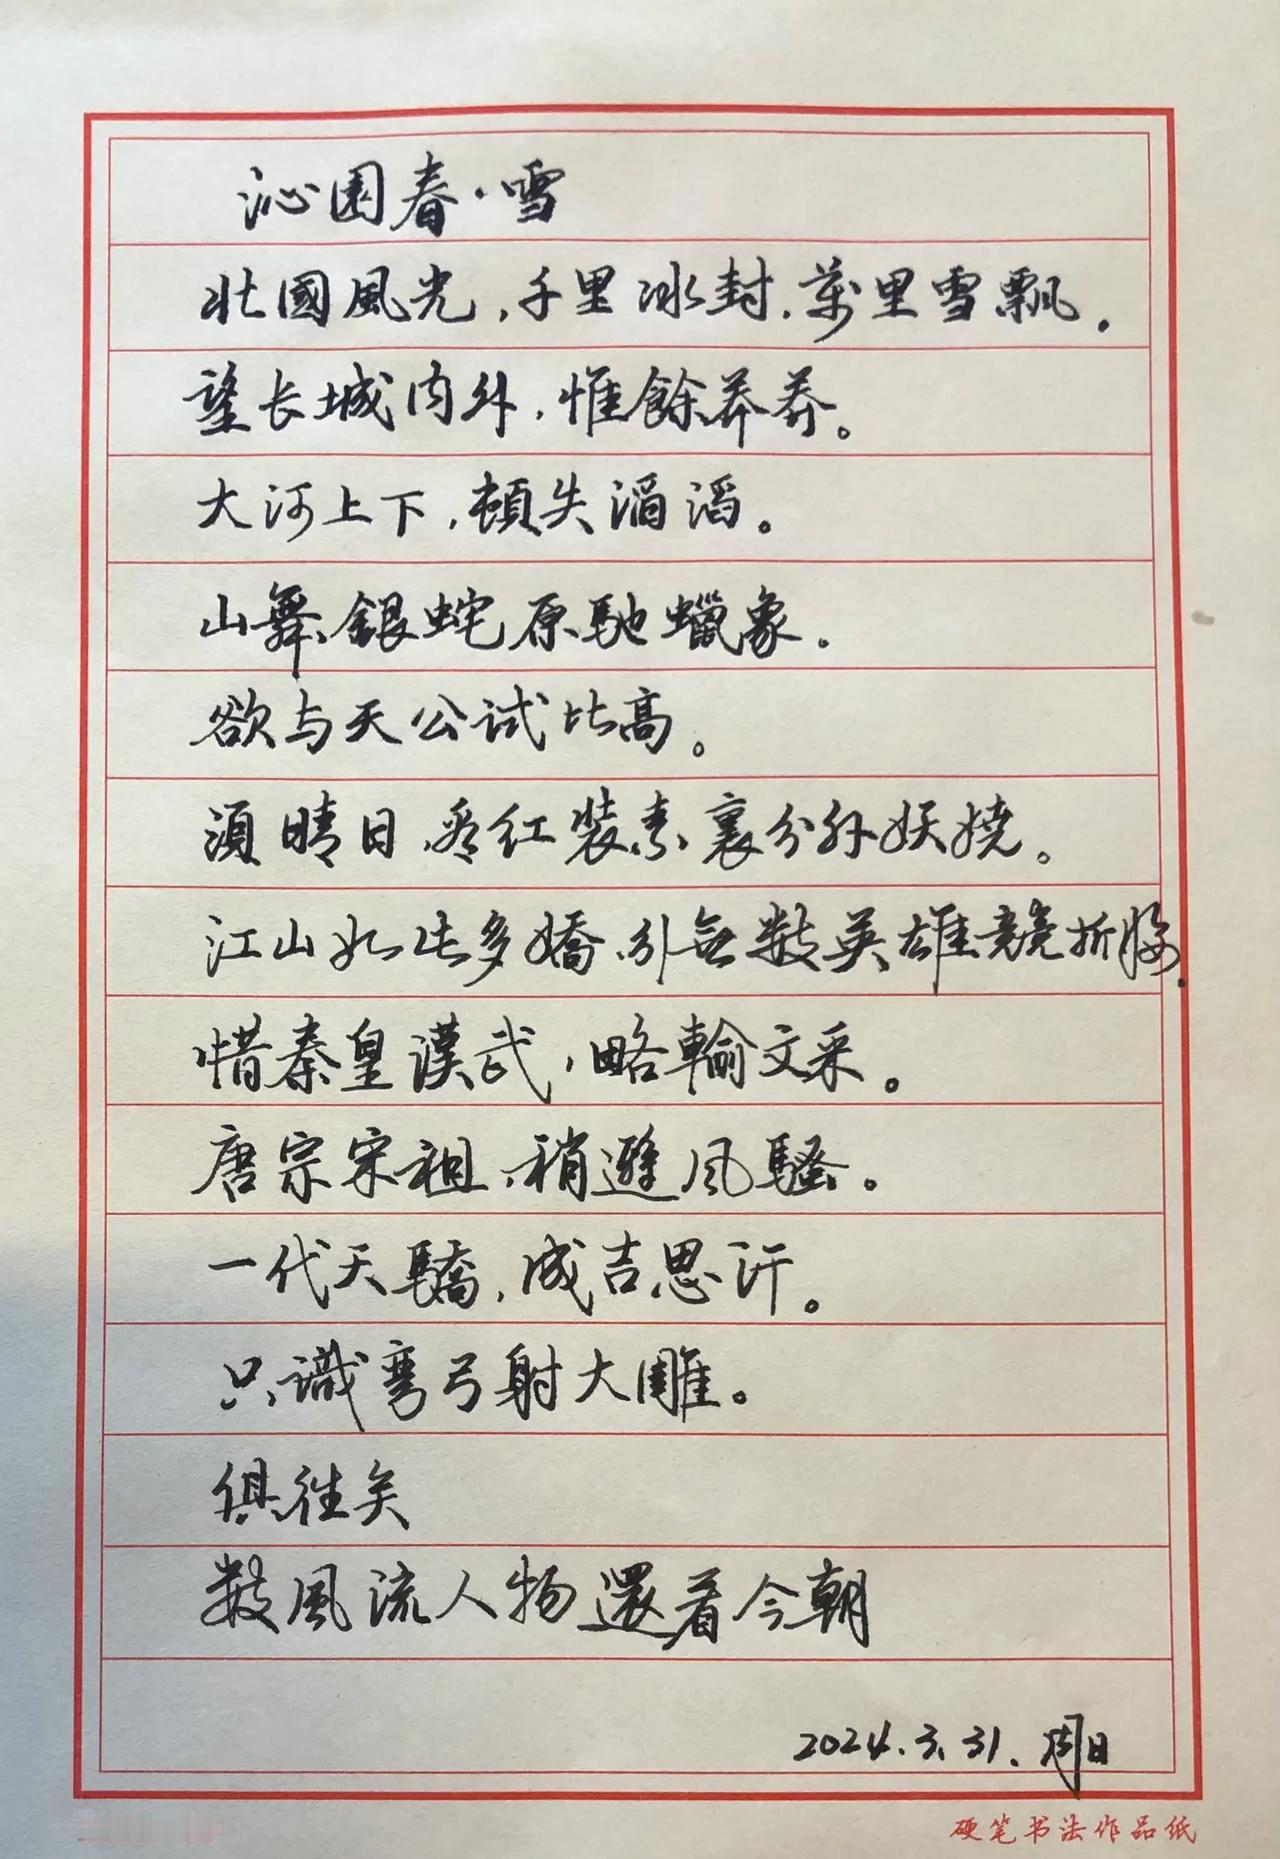 沁園春·雪
北國風光,千里冰封.萬里雪飄.
望长城内外,惟餘莽莽。
大河上下,頓失滔滔。
山舞銀蛇原馳蠟象.
欲与天公试比高。
須晴日,看红装素裹分外妖娆。
江山如此多嬌,引無数英雄競折腰.
惜秦皇漢武,略輸文采。
唐宗宋祖,稍遜风騷。
一代天驕,成吉思汗。
只識弯弓射大雕。
俱往矣
数風流人物還看今朝
2024.3.31.周日
硬笔书法作品纸